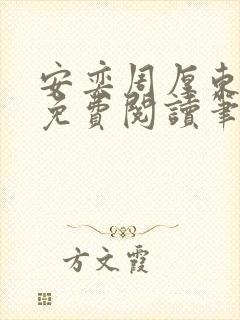 安奕周厘東
免費閱讀筆
方文霞